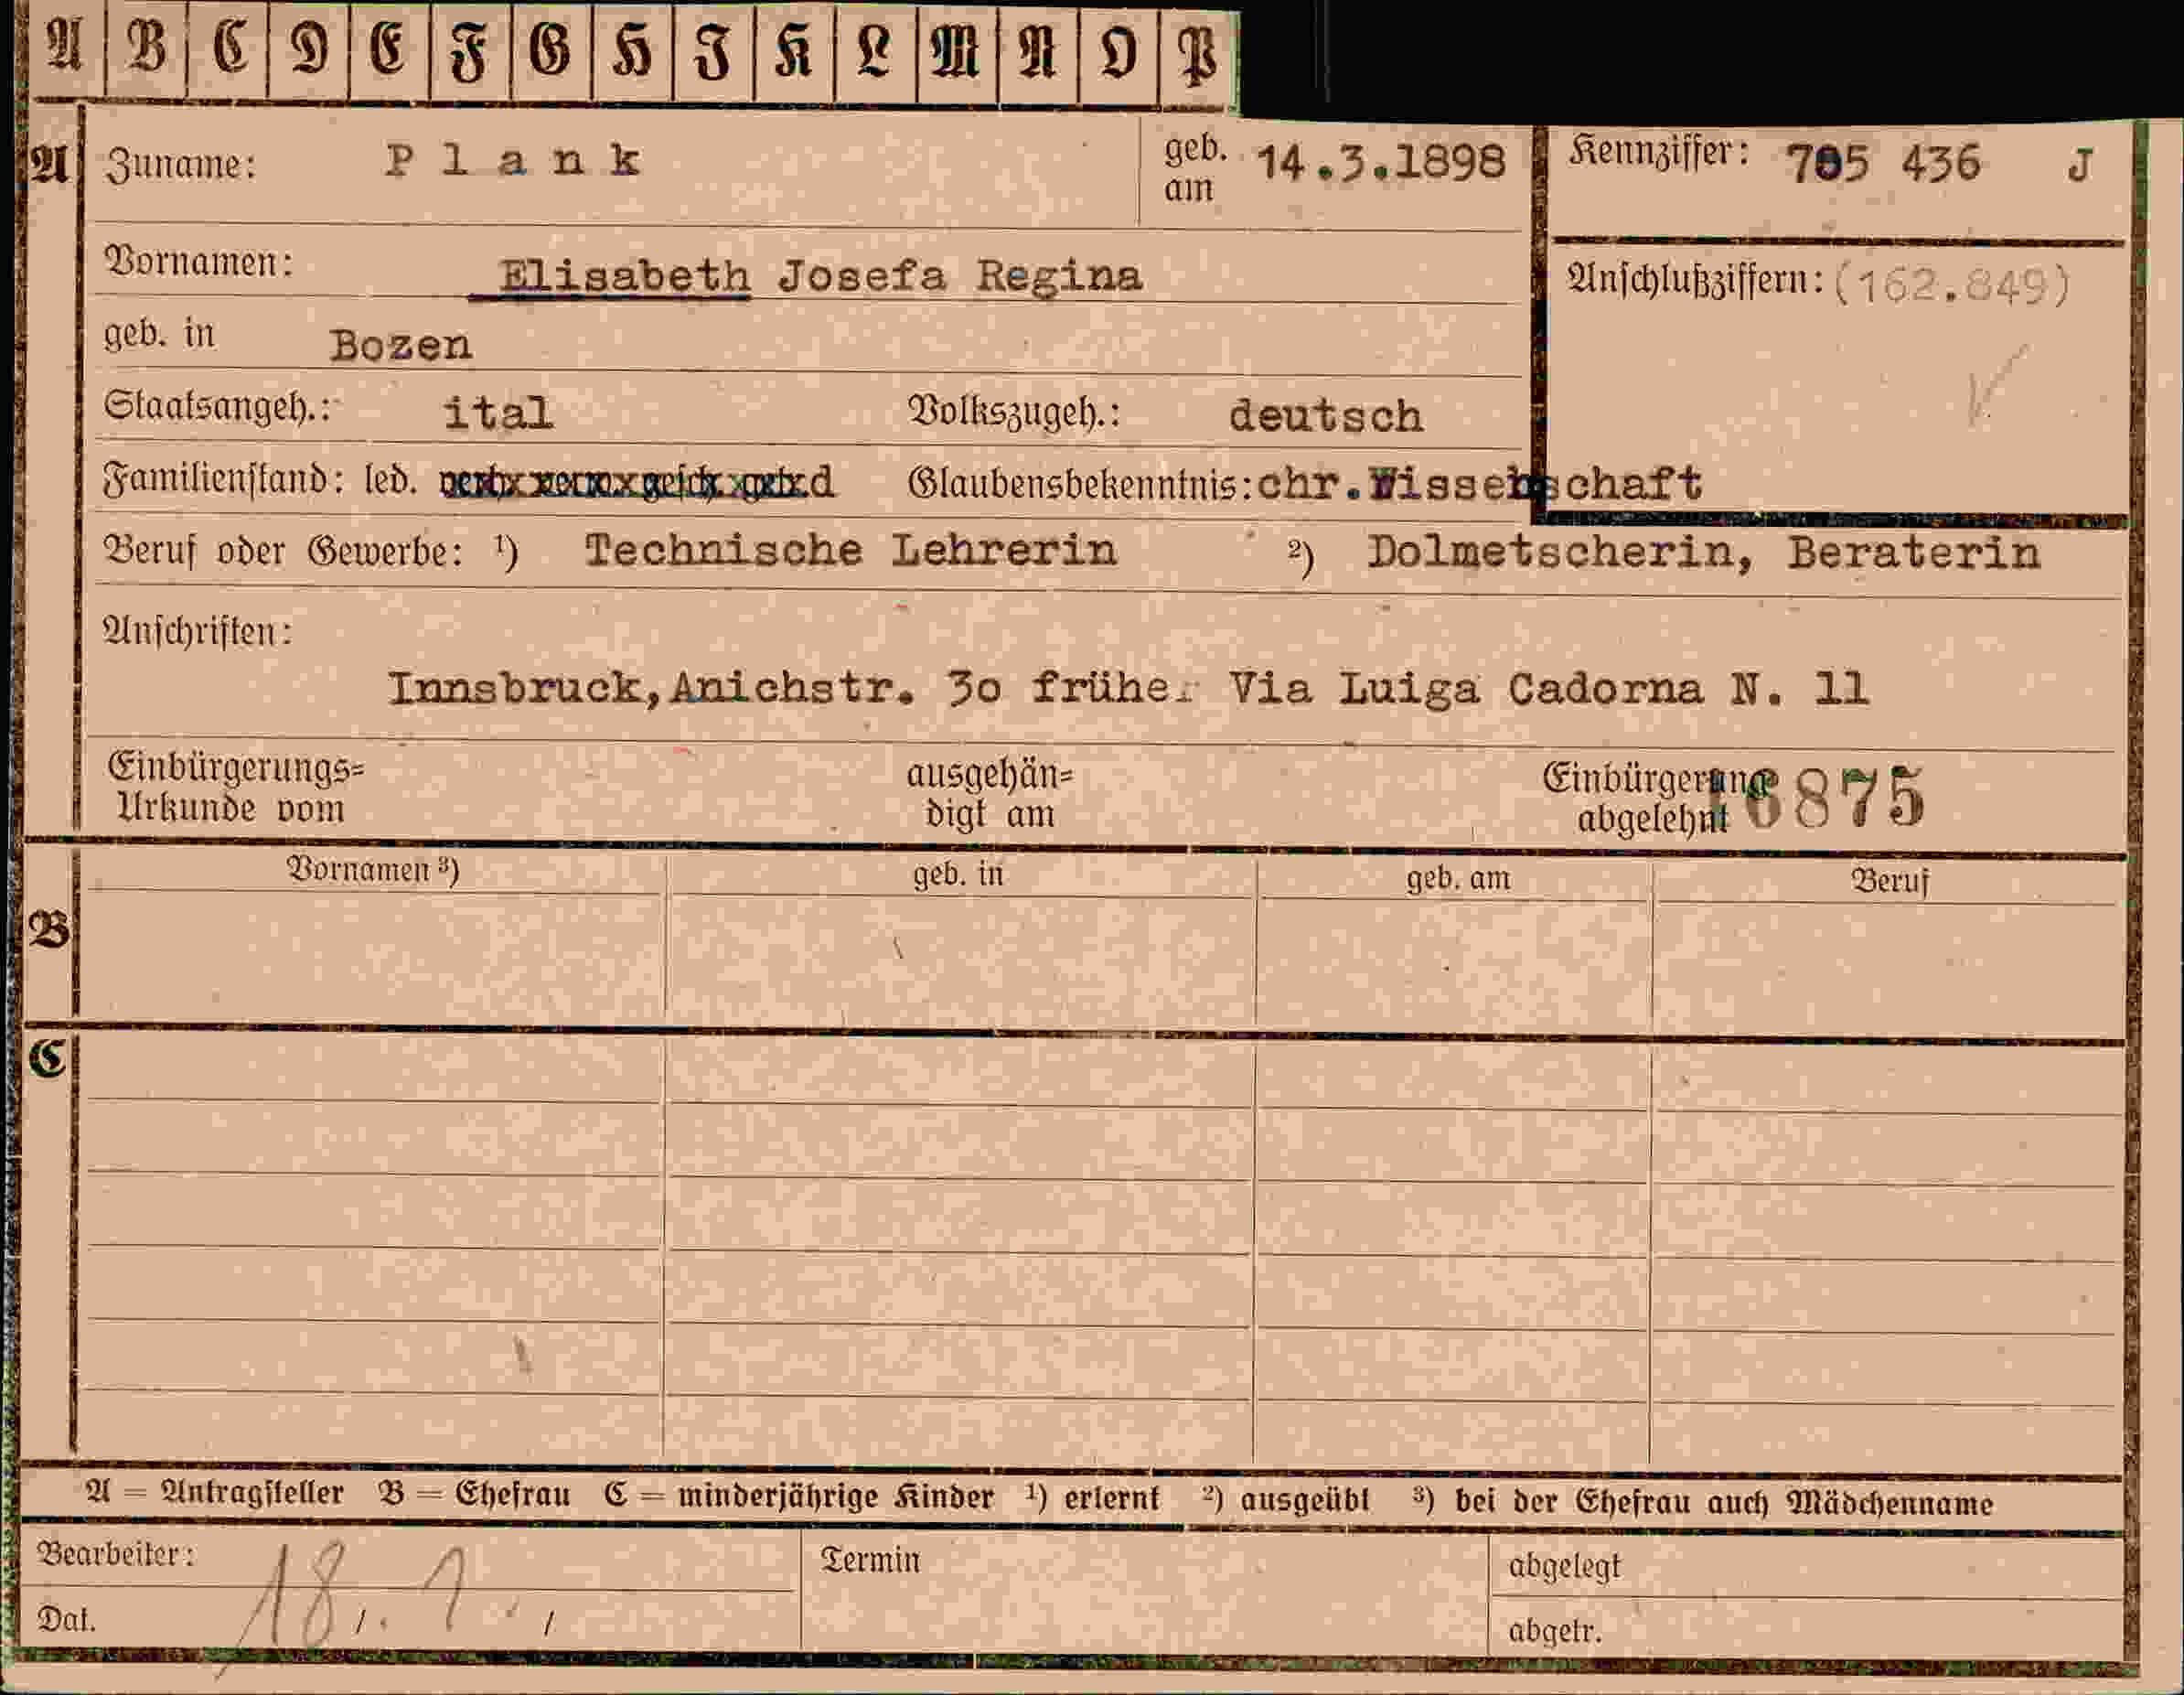 A B C D E F G H I K L M N O P
A Zuname: Plank geb. am 14.3.1898 Kennziffer: 705 436 J
Vornamen: Elisabeth Josefa Regina Anschlußziffern: (162.849)
geb. in Bozen
Staatsangeh.: ital Volkszugeh.: deutsch
Familienstand: led. verh. verw. gesch. getr. d Glaubensbekenntnis: chr.Wissenschaft
Beruf oder Gewerbe: ¹) Technische Lehrerin ²) Dolmetscherin, Beraterin
Anschriften:
Innsbruck,Anichstr. 30 früher Via Luiga Cadorna N. 11
Einbürgerungs= ausgehän= Einbürgerung
Urkunde vom digt am abgelehnt 6875
Vornamen ³) geb. in geb. am Beruf
B
C
A = Antragsteller B = Ehefrau C = minderjährige Kinder ¹) erlernt ²) ausgeübt ³) bei der Ehefrau auch Mädchenname
Bearbeiter: Termin abgelegt
Dat. 18. abgetr.